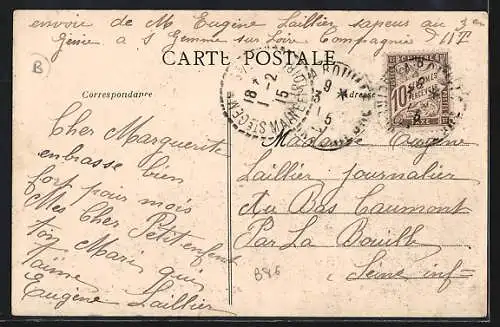 envoie de M Eugène Laillier sapeur au 3 en
Génie a S Gemme sur Loire Compagnie D 11T
B
CARTE POSTALE
Correspondance
Adresse
18
1-2
15
9
3
5
10
CENTIMES
A PERCEVOIR
Cher Marguerite
enbrasse bien
fort pour mois
Mes Cher Petit enfent
Ton Mari qui
t'aime
Eugène Laillier
Madame Eugène
Laillier journalier
Au Bas Caumont
Par La Bouille
Seine inf=
B86